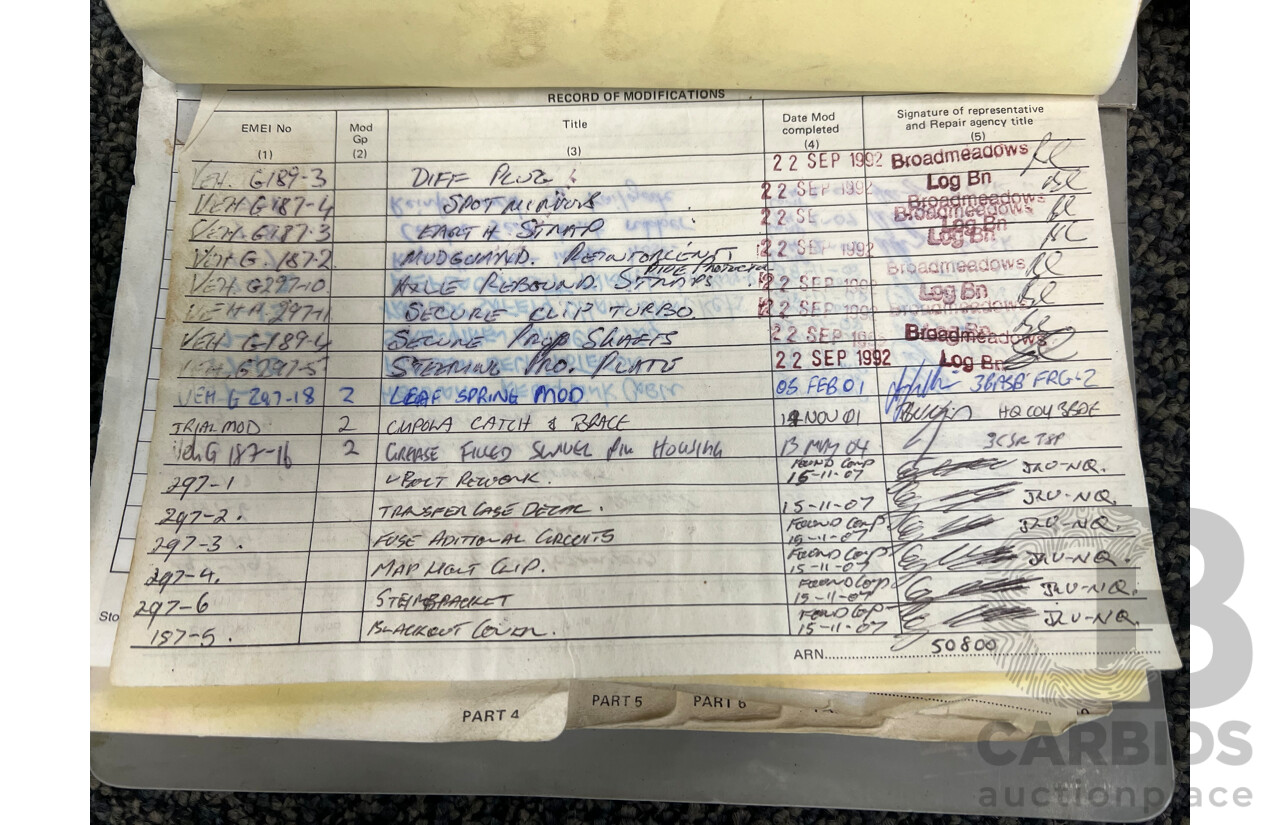 RECORD OF MODIFICATIONS
EMEI No (1) Mod Gp (2) Title (3) Date Mod completed (4) Signature of representative and Repair agency title (5)
VEH. G189-3 DIFF PLUG 22 SEP 1992 Broadmeadows
VEH. G187-4 SPOT MIRRORS 22 SEP 1992 Log Bn
VEH. G187-3 EARTH STRAP 22 SEP Broadmeadows
VEH G. 187-2 MUDGUARD. REINFORCENT 22 SEP 1992 Log Bn
VEH. G297-10 AXLE REBOUND. STRAPS 22 SEP 1992 Broadmeadows
297-11 SECURE CLIP TURBO 22 SEP 1992 Log Bn
VEH. G189-4 SECURE PROP SHAFTS 22 SEP 1992 Broadmeadows
VEH. G297-5 STEERING PRO. PLATE 22 SEP 1992 Log Bn
VEH-G 297-18 2 LEAF SPRING MOD 05 FEB 01
TRIAL MOD 2 CUPOLA CATCH & BRACE NOV 01
Veh G 187-16 2 GREASE FILLED SWIVEL PIN HOUSING 13 MAY 04
297-1 U BOLT REWORK. FOUND COMP 15-11-07 JLU-NQ.
297-2. TRANSFER CASE DECAL. 15-11-07 JLU-NQ.
297-3. FUSE ADITIONAL CIRCUITS FOUND COMP 15-11-07 JLU-NQ.
297-4. MAP LIGHT CLIP. FOUND COMP 15-11-07 JLU-NQ.
297-6 FOUND COMP 15-11-07 JLU-NQ.
187-5. BLACKOUT COVER. FOUND COMP 15-11-07 JLU-NQ.
ARN 50800
Sto
PART 4 PART 5 PART 6
CARBIDS
auctionplace